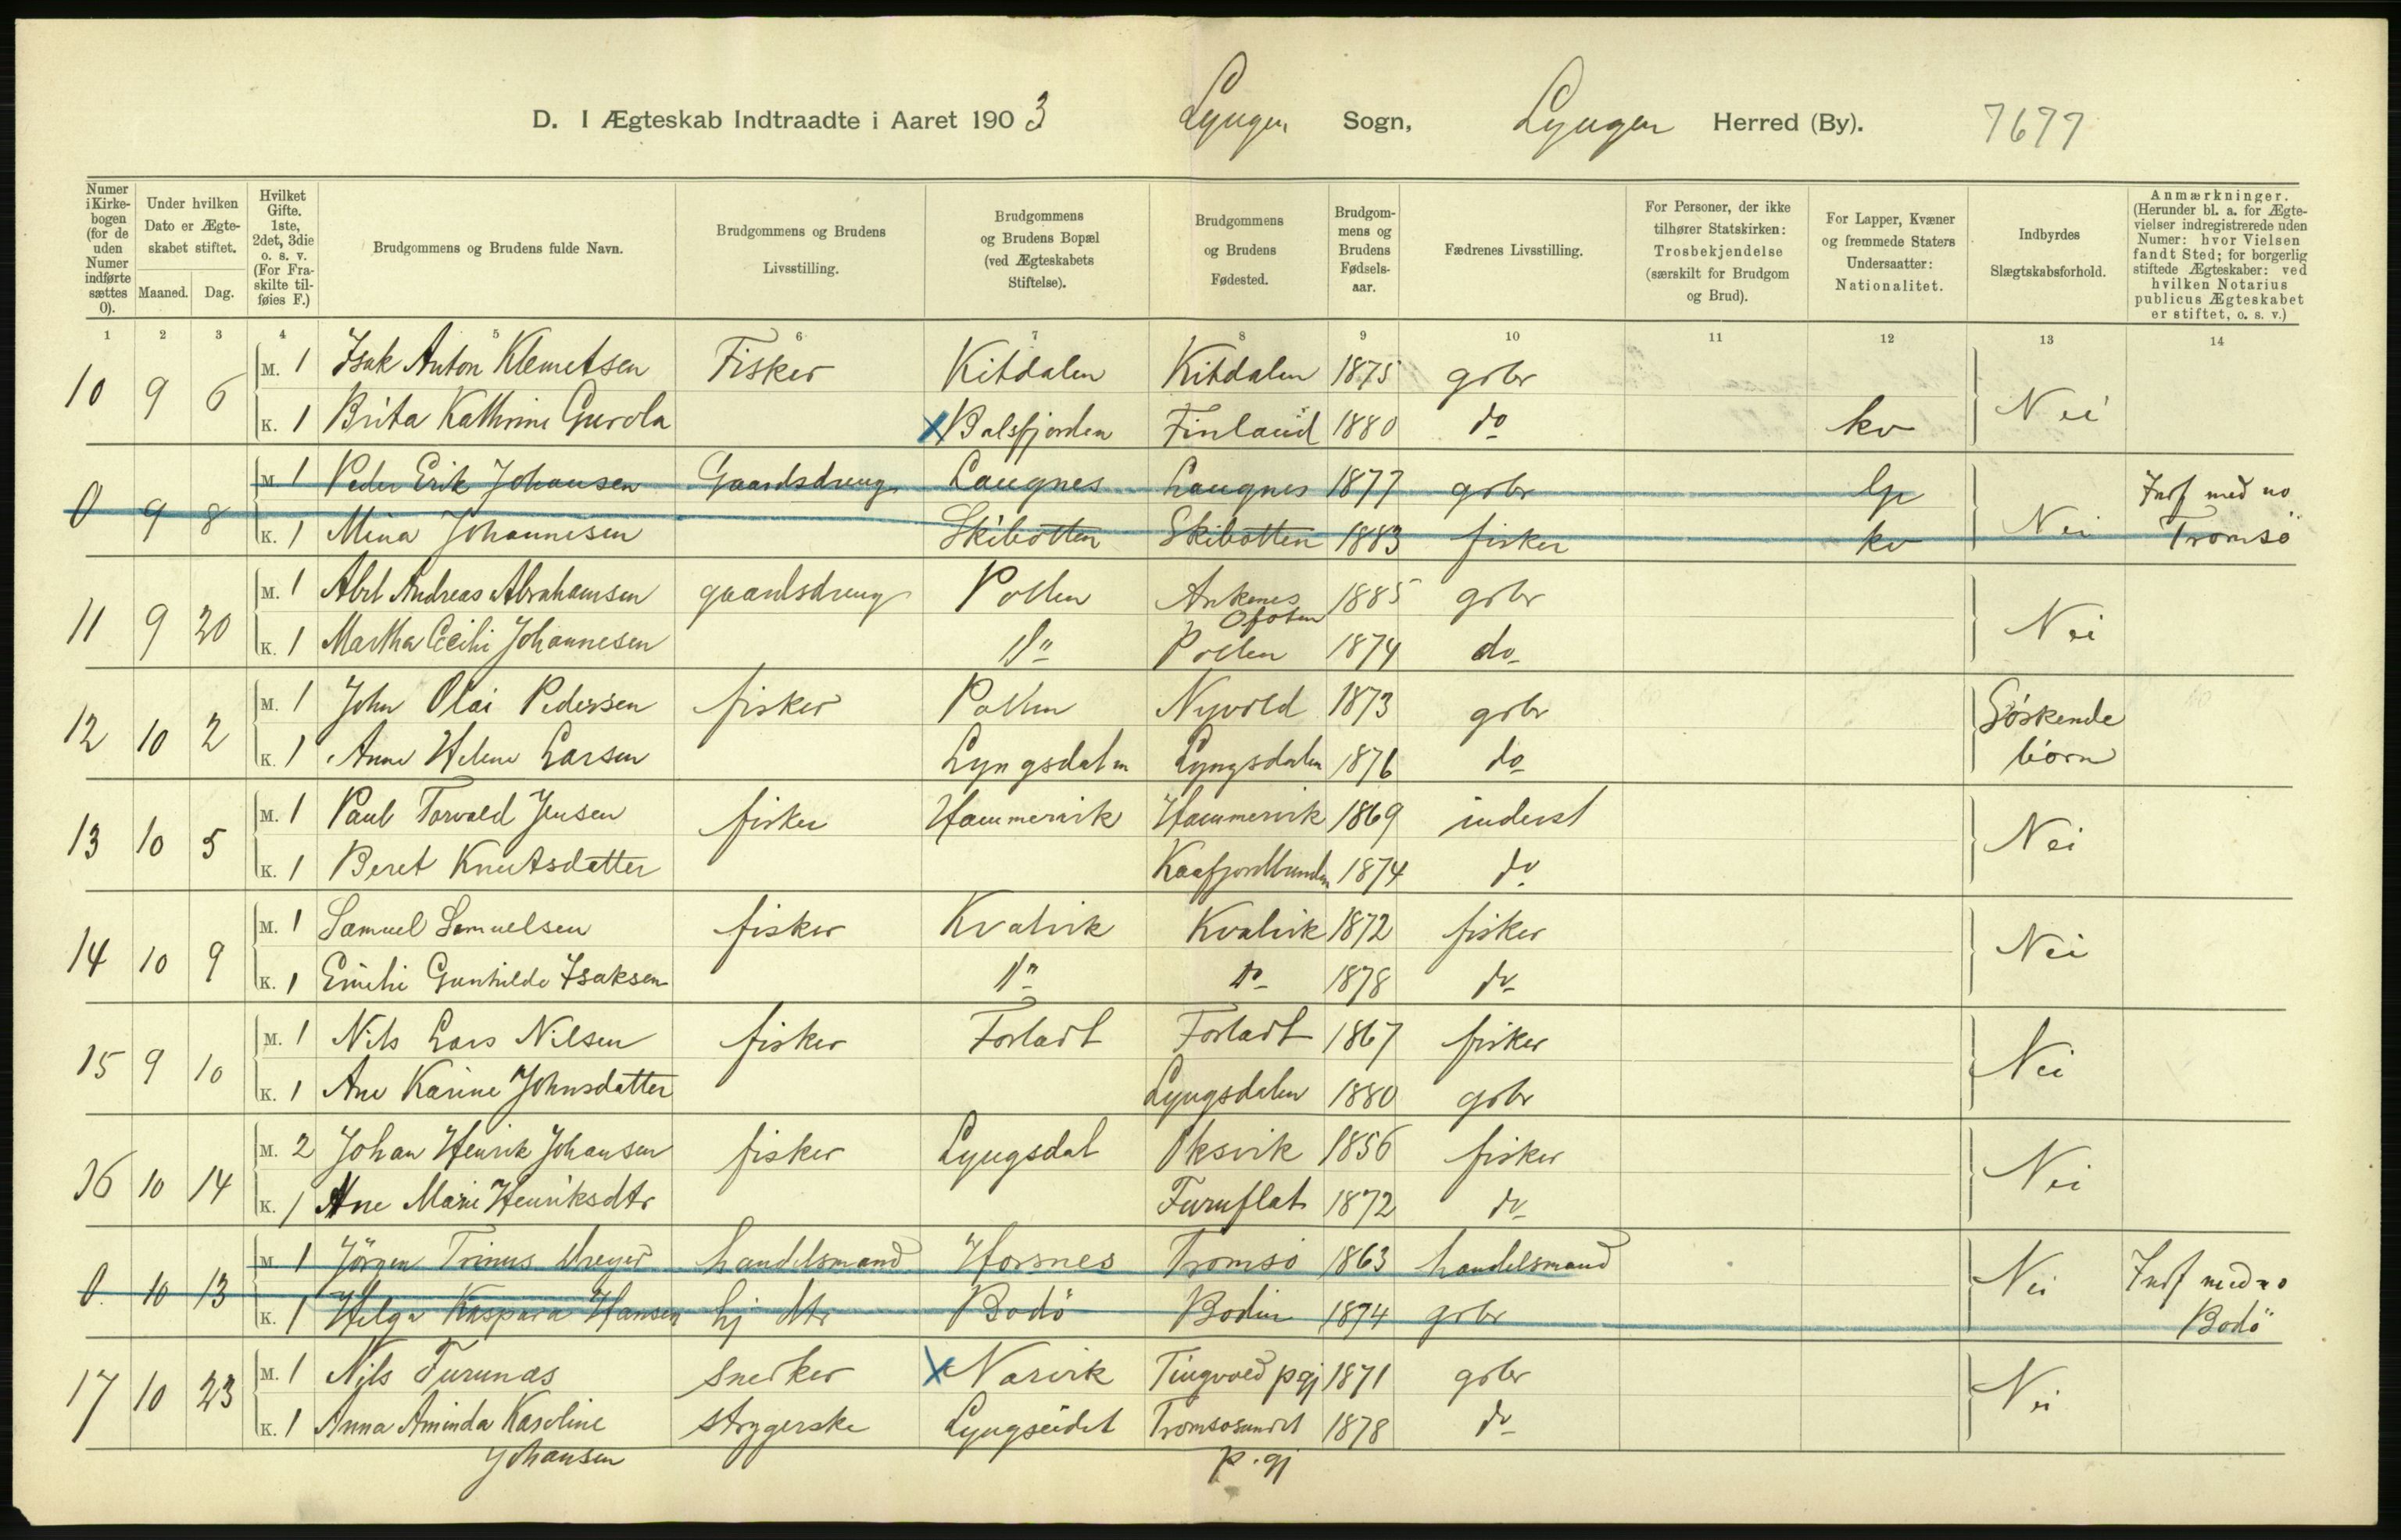 D. I Ægteskab Indtraadte i Aaret 1903 Lyngen Sogn, Lyngen Herred (By). 7677
Numer i Kirkebogen (for de uden Numer indførte sættes 0).
Under hvilken Dato er Ægteskabet stiftet.
Maaned. Dag.
Hvilket Gifte. 1ste, 2det, 3die o. s. v. (For Fraskilte tilføies F.)
Brudgommens og Brudens fulde Navn.
Brudgommens og Brudens Livsstilling.
Brudgommens og Brudens Bopæl (ved Ægteskabets Stiftelse).
Brudgommens og Brudens Fødested.
Brudgommens og Brudens Fødselsaar.
Fædrenes Livsstilling.
For Personer, der ikke tilhører Statskirken: Trosbekjendelse (særskilt for Brudgom og Brud).
For Lapper, Kvæner og fremmede Staters Undersaatter: Nationalitet.
Indbyrdes Slægtskabsforhold.
Anmærkninger. (Herunder bl. a. for Ægtevielser indregistrerede uden Numer: hvor Vielsen fandt Sted; for borgerlig stiftede Ægteskaber: ved hvilken Notarius publicus Ægteskabet er stiftet, o. s. v.)
1 2 3 4 5 6 7 8 9 10 11 12 13 14
10 9 6 M. 1 Isak Anton Klemetsen Fisker Kitdalen Kitdalen 1875 grbr Nei
K. 1 Brita Kathrine Gurola X Balsfjorden Finland 1880 do kv
0 9 8 M. 1 Peder Erik Johansen Gaardsdreng Laugnes Laugnes 1877 grbr lp Nei Indf med no
K. 1 Mina Johannesen Skibotten Skibotten 1883 fisker kv Tromsö
11 9 20 M. 1 Abel Andreas Abrahamsen gaardsdreng Pollen Ankenes Ofoten 1885 grbr Nei
K. 1 Martha Cecilie Johannesen Do Pollen 1874 do
12 10 2 M. 1 John Olai Pedersen fisker Pollen Nyvold 1873 grbr Söskende
K. 1 Anne Helene Larsen Lyngsdalen Lyngsdalen 1876 do börn
13 10 5 M. 1 Paul Torvald Jensen fisker Hammervik Hammervik 1869 inderst Nei
K. 1 Beret Knutsdatter Kaafjordbunden 1874 do
14 10 9 M. 1 Samuel Samuelsen fisker Kvalvik Kvalvik 1872 fisker Nei
K. 1 Emilie Gunhilde Isaksen Do Do 1878 do
15 9 10 M. 1 Nils Lars Nilsen fisker Forladt Forladt 1867 fisker Nei
K. 1 Ane Karine Johnsdatter Lyngsdalen 1880 grbr
16 10 14 M. 2 Johan Henrik Johansen fisker Lyngsdal Oksvik 1856 fisker Nei
K. 1 Ane Marie Henriksdtr Furuflat 1872 do
0 10 13 M 1 Jörgen Trinus Dreyer handelsmand Horsnes Tromsö 1863 handelsmand Nei Indf med no
K. 1 Helga Kaspara Hansen hj dtr Bodö Bodin 1874 grbr Bodö
17 10 23 M. 1 Nils Furunæs snedker X Narvik Tingvold pgj 1871 grbr Nei
K. 1 Anna Aminda Karoline strygerske Lyngseidet Tromsosundet 1878 do
Johansen p.gj